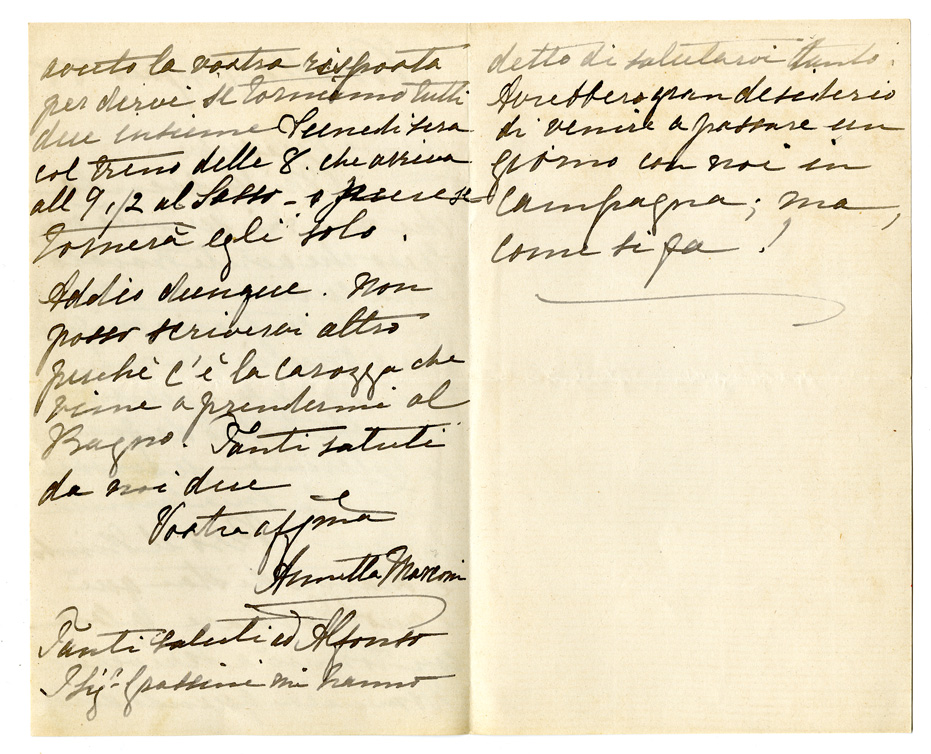 avuto la vostra risposta
per dirvi se torniamo tutti
due insieme Lunedi sera
col treno delle 8. che arriva
all 9 1/2 al Sasso - o se
tornerà egli solo.
Addio dunque. Non
posso scrivervi altro
perchè c'è la carozza che
viene a prendermi al
Bagno. Tanti saluti
da noi due
Vostra affma
Annetta Marconi
Tanti saluti ad Alfonso
I Sigi Grassini mi hanno
detto di salutarvi tanto.
Avrebbero gran desiderio
di venire a passare un
giorno con noi in
Campagna; ma,
come si fa!